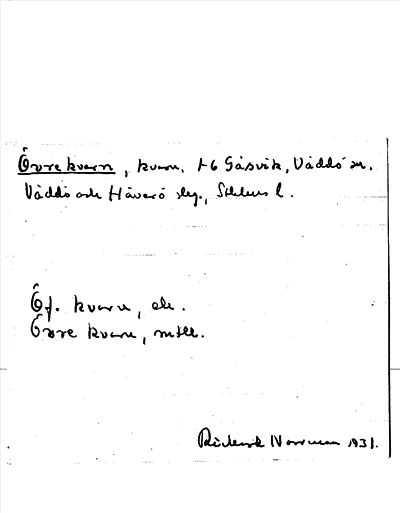 Övre kvarn, kvarn, t 6 Gåsvik, Väddö sn.
Väddö och Häverö skg., Sthlms l.
Öf. kvarn, ek.
Övre kvarn, mtll.
Rickard Norrman 1931.